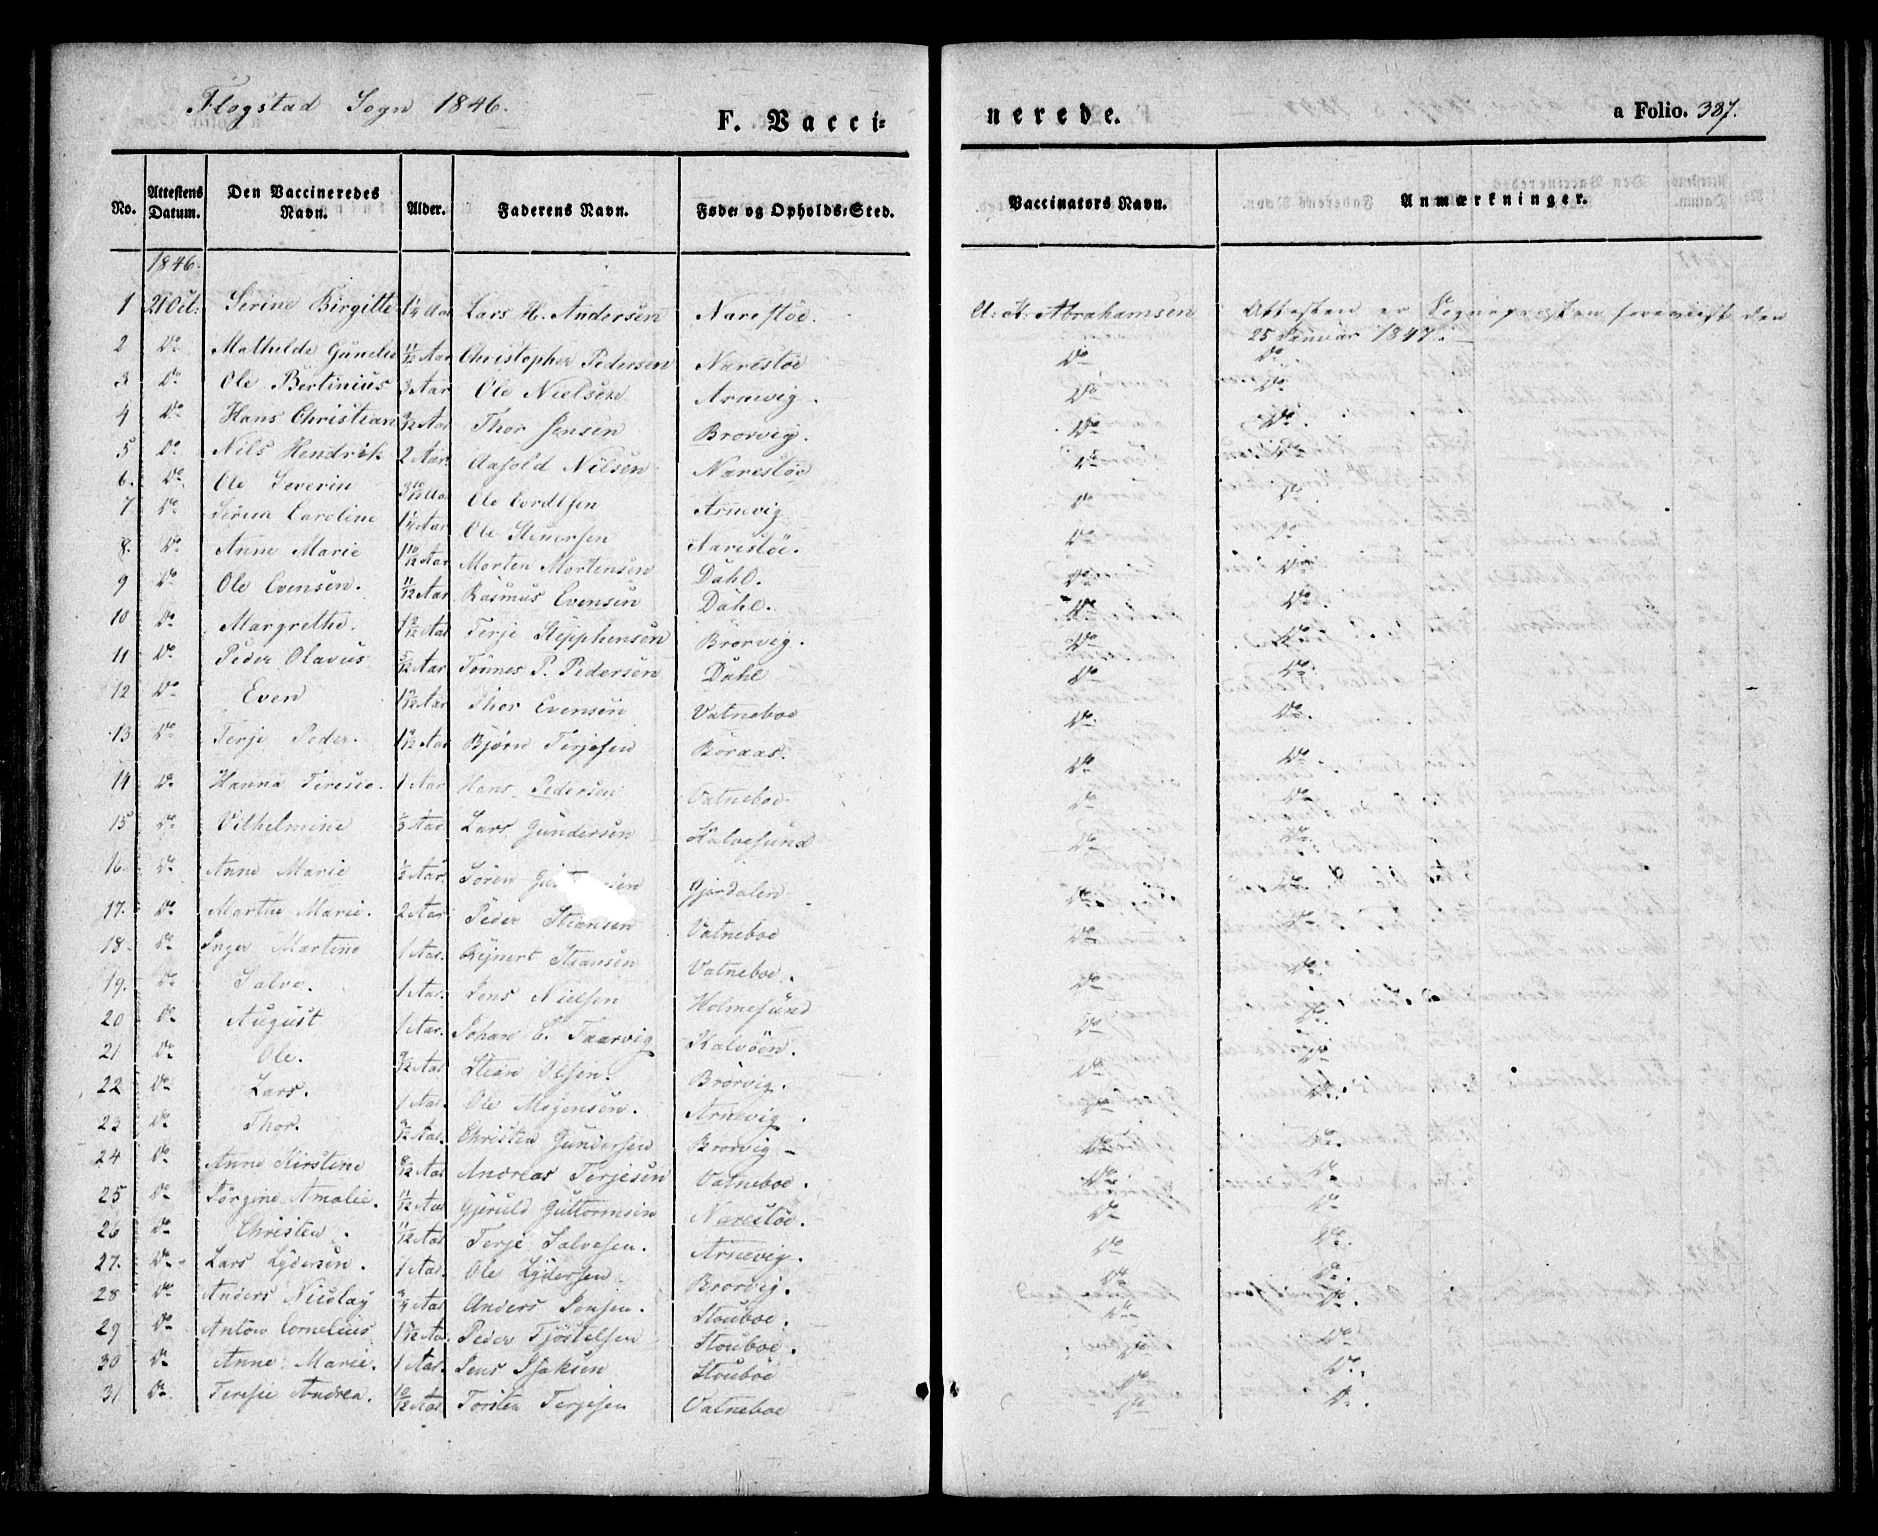 Flogstad Sogn 1846.
F. Vacci=
nerede.
a Folio. 387.
No. | Attestens Datum. | Den Vaccineredes Navn. | Alder. | Faderens Navn. | Føde- og Opholds-Sted. | Vaccinators Navn. | Anmærkninger.
1846.
1 | 21 Oct: | Serine Birgitte | 1 1/4 Aar | Lars H. Andersen | Narestöe. | A: A: Abrahamsen | Attesten er Sognepresten foreviist den
25 Januar 1847.
2 | Do | Mathilde | 11/12 Aar | Christopher Pedersen | Narestöe | Do | Do
3 | Do | Ole Bertinius | 3 Aar | Ole Nielsen | Arnevig. | Do | Do
4 | Do | Hans Christian | 9/12 Aar | Thor Jensen | Brorvig. | Do | Do
5 | Do | Nils Hendrik | 2 Aar. | Aasold Nilsen | Narestöe | Do | Do
6. | Do | Ole Severin | 3 10/12 Aar | Ole | Arnevig | Do | Do
7 | Do | Serine Caroline | 1 1/4 Aar | Ole Stenersen | Narestöe. | Do | Do
8. | Do | Anne Marie | 1 10/12 Aar | Morten Mortensen | Dahl. | Do | Do
9 | Do | Ole Evensen. | 11/12 Aar | Rasmus Evensen | Dahl. | Do | Do
10 | Do | Margrethe. | Aar | Terje Stepphensen | Brörvig. | Do | Do
11 | Do | Peder Olavus | 5/12 Aar | Tönnes P. Pedersen | Dahl | Do | Do
12 | Do | Even | Aar | Thor Evensen | Vatneboe | Do | Do
13 | Do | Terje Peder. | Aar | Björn Terjesen | Boraas. | Do | Do
14 | Do | Hanna Teresie. | 1 Aar | Hans Pedersen | Vatneboe | Do | Do
15 | Do | Vilhelmine | Aar | Lars Gundersen | Kalvesund | Do | Do
16. | Do | Anne Marie | 1/2 Aar. | Sören | Gjerdalen | Do | Do
17. | Do | Marthe Marie. | 2 Aar | Peder Steansen | Vatneboe | Do | Do
18 | Do | Inger Martine | 1 Aar. | Reynert Steansen | Vatneboe. | Do | Do
19. | Do | Salve. | 1 Aar. | Jens Nielsen | Holmesund | Do | Do
20 | Do | August | 1 Aar. | Johan C. Taarvig | Kalvöen. | Do | Do
21 | Do | Ole. | 9/12 Aar | Stean Olsen. | Brörvig. | Do | Do
22 | Do | Lars. | 1 Aar. | Ole Mogensen. | Arnevig. | Do | Do
23 | Do | Thor. | 9/12 Aar. | Christen Gundersen | Brorvig – | Do | Do
24 | Do | Anne Kirstine | 8/12 Aar | Andreas Terjesen | Vatneboe. | Do | Do
25 | Do | Jörgine Amalie. | 11/12 Aar | Gjeruld Guttormsen | Narestöe. | Do | Do
26 | Do | Christen. | 11/12 Aar | Terje Salvesen. | Arnevig. | Do | Do
27. | Do | Lars Lydersen. | 1 Aar. | Ole Lydersen | Brorvig. | Do | Do
28 | Do | Anders Nicolay | 3/4 Aar | Anders Jensen. | Stouboe. | Do | Do
29 | Do | Anton Cornelius | Aar. | Peder Tjöstelsen | Stouboe. | Do | Do
30 | Do | Anne Marie. | 1 Aar. | Jens Isaksen | Stouboe | Do | Do
31 | Do | Teresie Andrea. | 10/12 Aar | Torsten Terjesen | Vatneboe | Do | Do